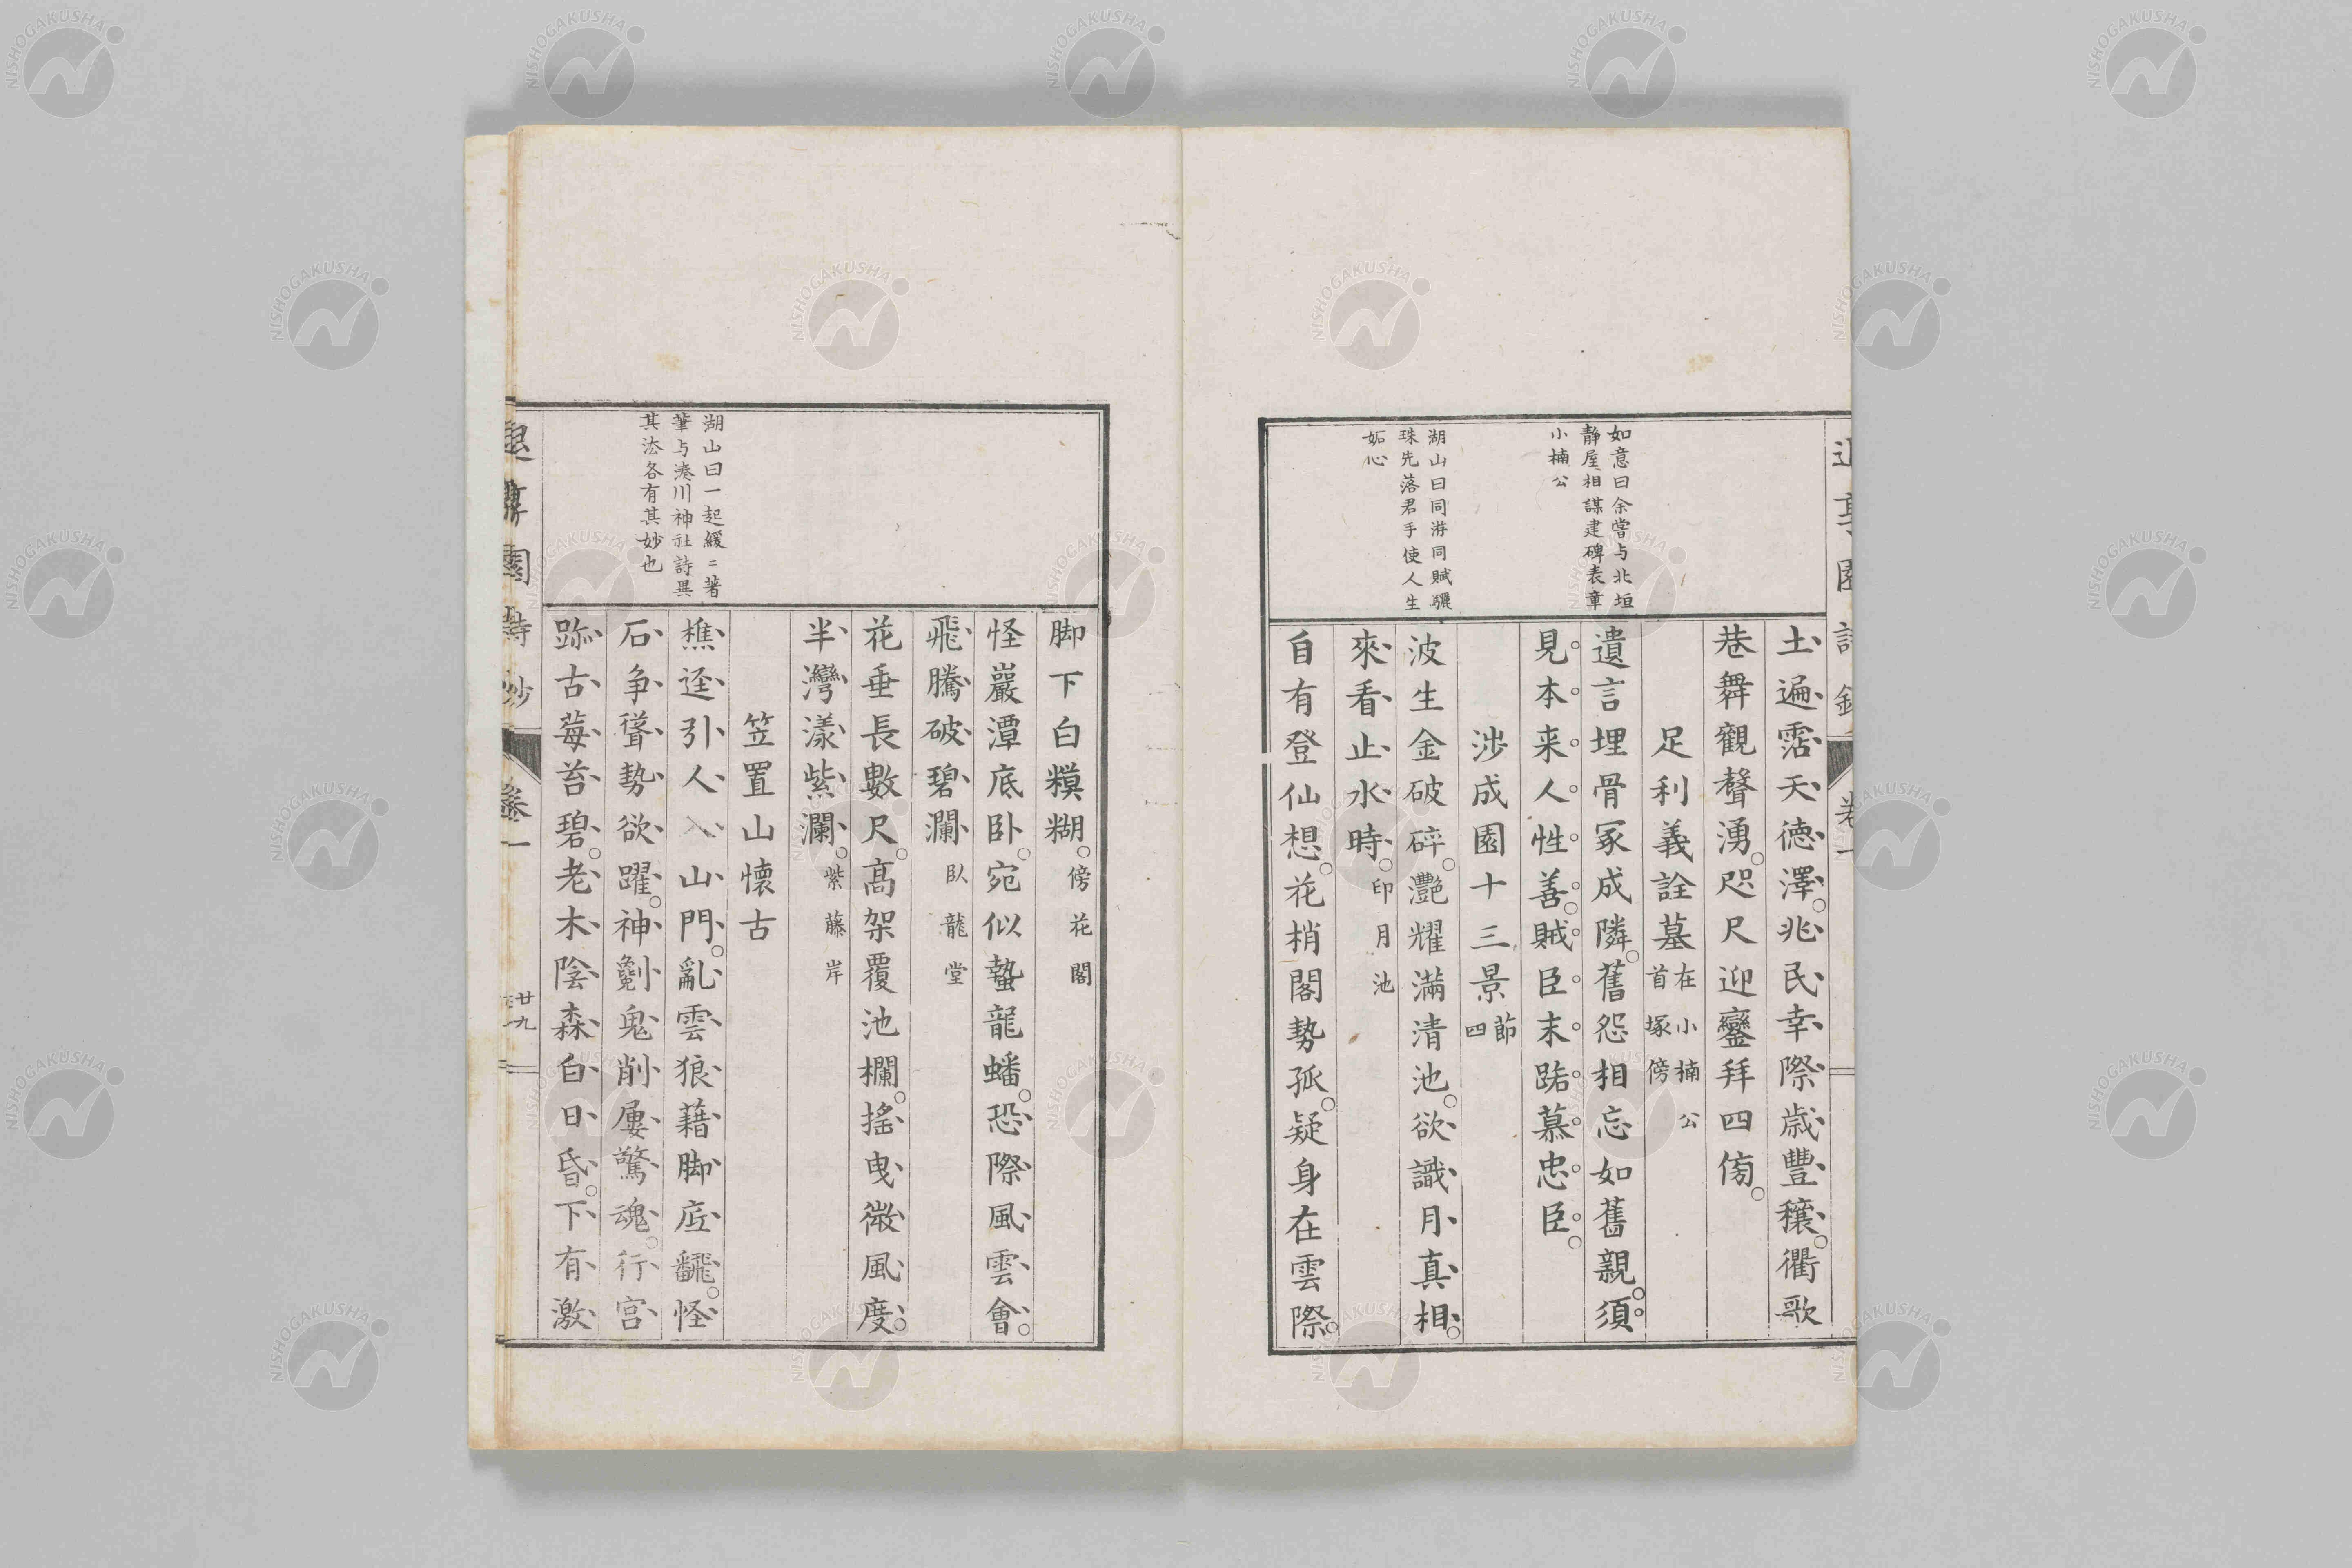 如意曰余嘗与北垣
静屋相謀建碑表章
小楠公
湖山曰同游同賦驪
珠先落君手使人生
妬心
土遍霑天徳澤兆民幸際歳豐穰衢歌
巷舞觀聲湧咫尺迎鑾拜四傍
足利義詮墓在小楠公首塚傍
遺言埋骨冢成隣舊怨相忘如舊親須
見本来人性善賊臣末路慕忠臣
渉成園十三景節四
波生金破碎灔耀滿清池欲識月真相
來看止水時印月池
自有登仙想花梢閣勢孤疑身在雲際
卷一
湖山曰一起緩二著
筆与湊川神社詩異
其法各有其妙也
脚下白糢糊傍花閣
怪巖潭底卧宛似蟄龍蟠恐際風雲會
飛騰破碧瀾臥龍堂
花垂長數尺高架覆池欄搖曳微風度
半灣漾紫瀾紫藤岸
笠置山懷古
樵逕引人入山門亂雲狼藉脚底飜怪
石争聳勢欲躍神劖鬼削屢驚魂行宮
跡古莓苔碧老木陰森白日昏下有激
園詩鈔
卷一
廿九
NISHOGAKUSHA